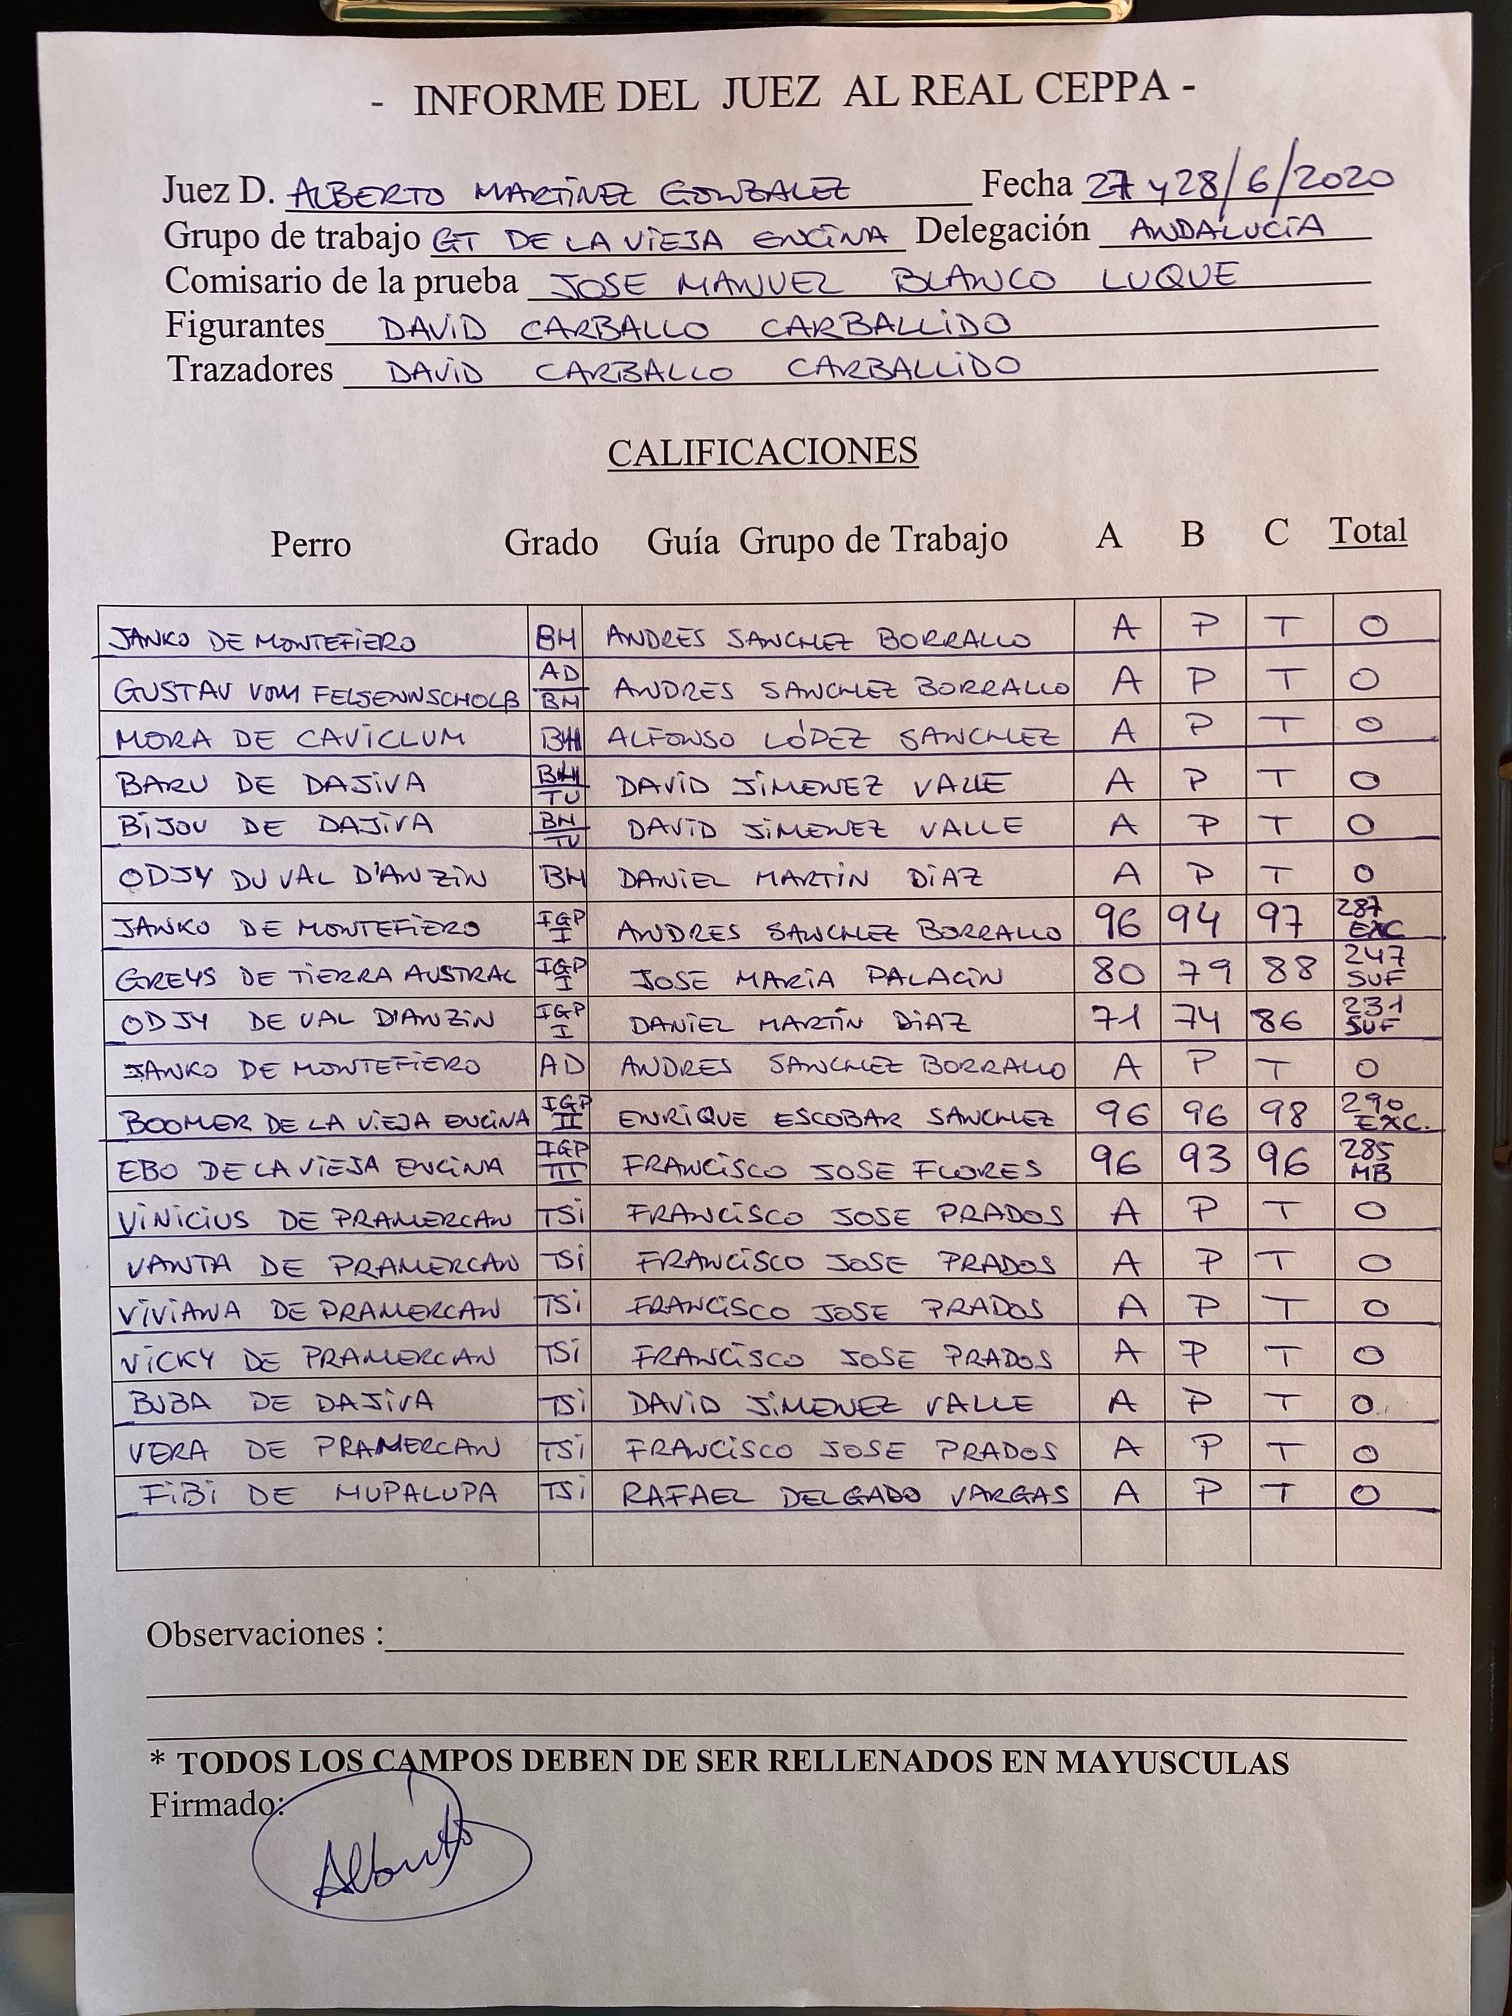 - INFORME DEL JUEZ AL REAL CEPPA -
Juez D. ALBERTO MARTÍNEZ GONZALEZ Fecha 27 y 28/6/2020
Grupo de trabajo GT DE LA VIEJA ENCINA Delegación ANDALUCÍA
Comisario de la prueba JOSE MANUEL BLANCO LUQUE
Figurantes DAVID CARBALLO CARBALLIDO
Trazadores DAVID CARBALLO CARBALLIDO
CALIFICACIONES
Perro Grado Guía Grupo de Trabajo A B C Total
JANKO DE MONTEFIERO BH ANDRES SANCHEZ BORRALLO A P T O
GUSTAV VOM FELSENNSCHOLB AD BH ANDRES SANCHEZ BORRALLO A P T O
MORA DE CAVICLUM BH ALFONSO LÓPEZ SANCHEZ A P T O
BARU DE DAJIVA BH TU DAVID JIMENEZ VALLE A P T O
BIJOU DE DAJIVA BH TU DAVID JIMENEZ VALLE A P T O
ODJY DU VAL D'ANZIN BH DANIEL MARTIN DIAZ A P T O
JANKO DE MONTEFIERO IGP I ANDRES SANCHEZ BORRALLO 96 94 97 287 EXC
GREYS DE TIERRA AUSTRAL IGP I JOSE MARIA PALACIN 80 79 88 247 SUF
ODJY DE VAL D'ANZIN IGP I DANIEL MARTÍN DIAZ 71 74 86 231 SUF
JANKO DE MONTEFIERO AD ANDRES SANCHEZ BORRALLO A P T O
BOOMER DE LA VIEJA ENCINA IGP II ENRIQUE ESCOBAR SANCHEZ 96 96 98 290 EXC.
EBO DE LA VIEJA ENCINA IGP III FRANCISCO JOSE FLORES 96 93 96 285 MB
VINICIUS DE PRAMERCAN TSI FRANCISCO JOSE PRADOS A P T O
VANTA DE PRAMERCAN TSI FRANCISCO JOSE PRADOS A P T O
VIVIANA DE PRAMERCAN TSI FRANCISCO JOSE PRADOS A P T O
VICKY DE PRAMERCAN TSI FRANCISCO JOSE PRADOS A P T O
BIBA DE DAJIVA TSI DAVID JIMENEZ VALLE A P T O
VERA DE PRAMERCAN TSI FRANCISCO JOSE PRADOS A P T O
FIBI DE MUPALUPA TSI RAFAEL DELGADO VARGAS A P T O
Observaciones :
* TODOS LOS CAMPOS DEBEN DE SER RELLENADOS EN MAYUSCULAS
Firmado:
Alberto